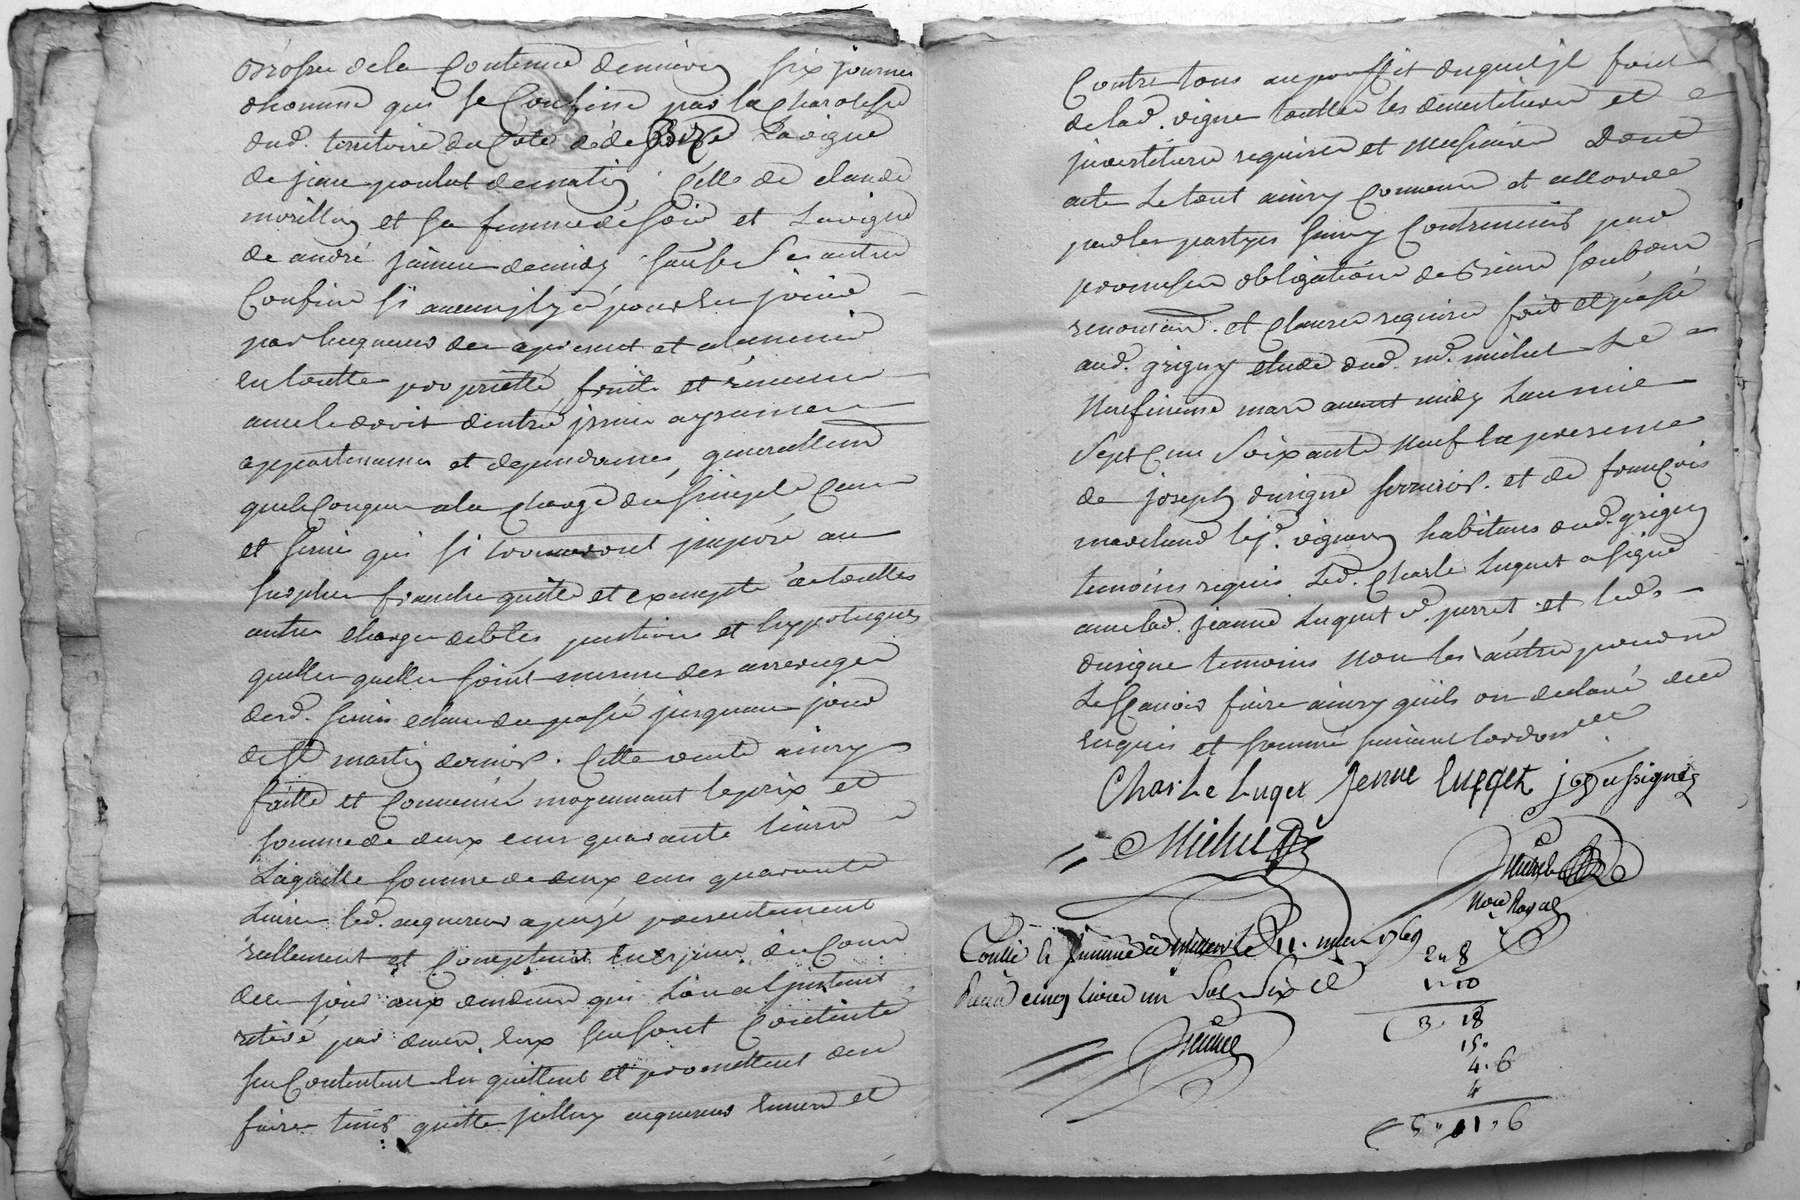 de la Contenue denviron six journee
dhomme qui se Confine par la
dud. territoire du Cote de de Bize La vigne
de jean poulat de matin Celle de claude
morillon et sa femme de soir et La vigne
de andré de midy sauf ses autre
Confin si aucun il y a pour en jouir
par lacquereur des apresent et a lavenir
en toutte proprietté fruits et revenu
avec le droit dentré jssue aysance
appartenance et dependances generallement
quelConque a la Charge du simple Cens
et servis qui si trouveront jmposé au
surplus franche quitte et exempte de touttes
autre charge debtes pention et hyppoteques
quelles quelles soint mesme des arrerages
desd. servis echeu du passé jusquau jour
de St martin dernier. Cette vente ainsy
faitte et Convenue moyennant le prix et
somme de deux cens quarante livres
Laquelle somme de deux cens quarante
Livres led. acquereur a payé presentement
reellement et Comptant en espece de Cours
de ce jour aux vendeurs qui Lon a linstant
retiré par devers eux sen sont Contenté
sen Contentent en quittent et promettent den
faire tenir quitte jcelluy acquereur envers et
Contre tous au proffit duquel jl font
de lad. vigne toutte les devestitures et
jnvestiture requises et necessaires Dont
acte Le tout ainsy Convenu et accordé
par les partyes promesses obligations de biens
renonciaon. et Clauses requise fait et passé
aud. grigny etude dud. me. michel Le
Neufieme mars avant midy Lan mil
Sept Cens Soixante Neuf En presence
de joseph dusigne serrurier. et de françois
marchand vigneron habitans aud. grigny
temoins requis. Led. Charle Luquet a signé
avec lad. jeanne Luquet ve. perret et led.
dusigne temoins Non les autre pour ne
Le sCavoir faire ainsy quils on declaré de ce
enquis et sommé suivant Lordonnce
CharLe Luqet Jenne Luqqet josep usigne
Michel
Nore Royal
Conllé le 11. mars 1769
Recu cinq Livres un Sol Six d
2 " 8
1 " 10
3 . 18
15 "
4 . 6
4
5 " 1 " 6